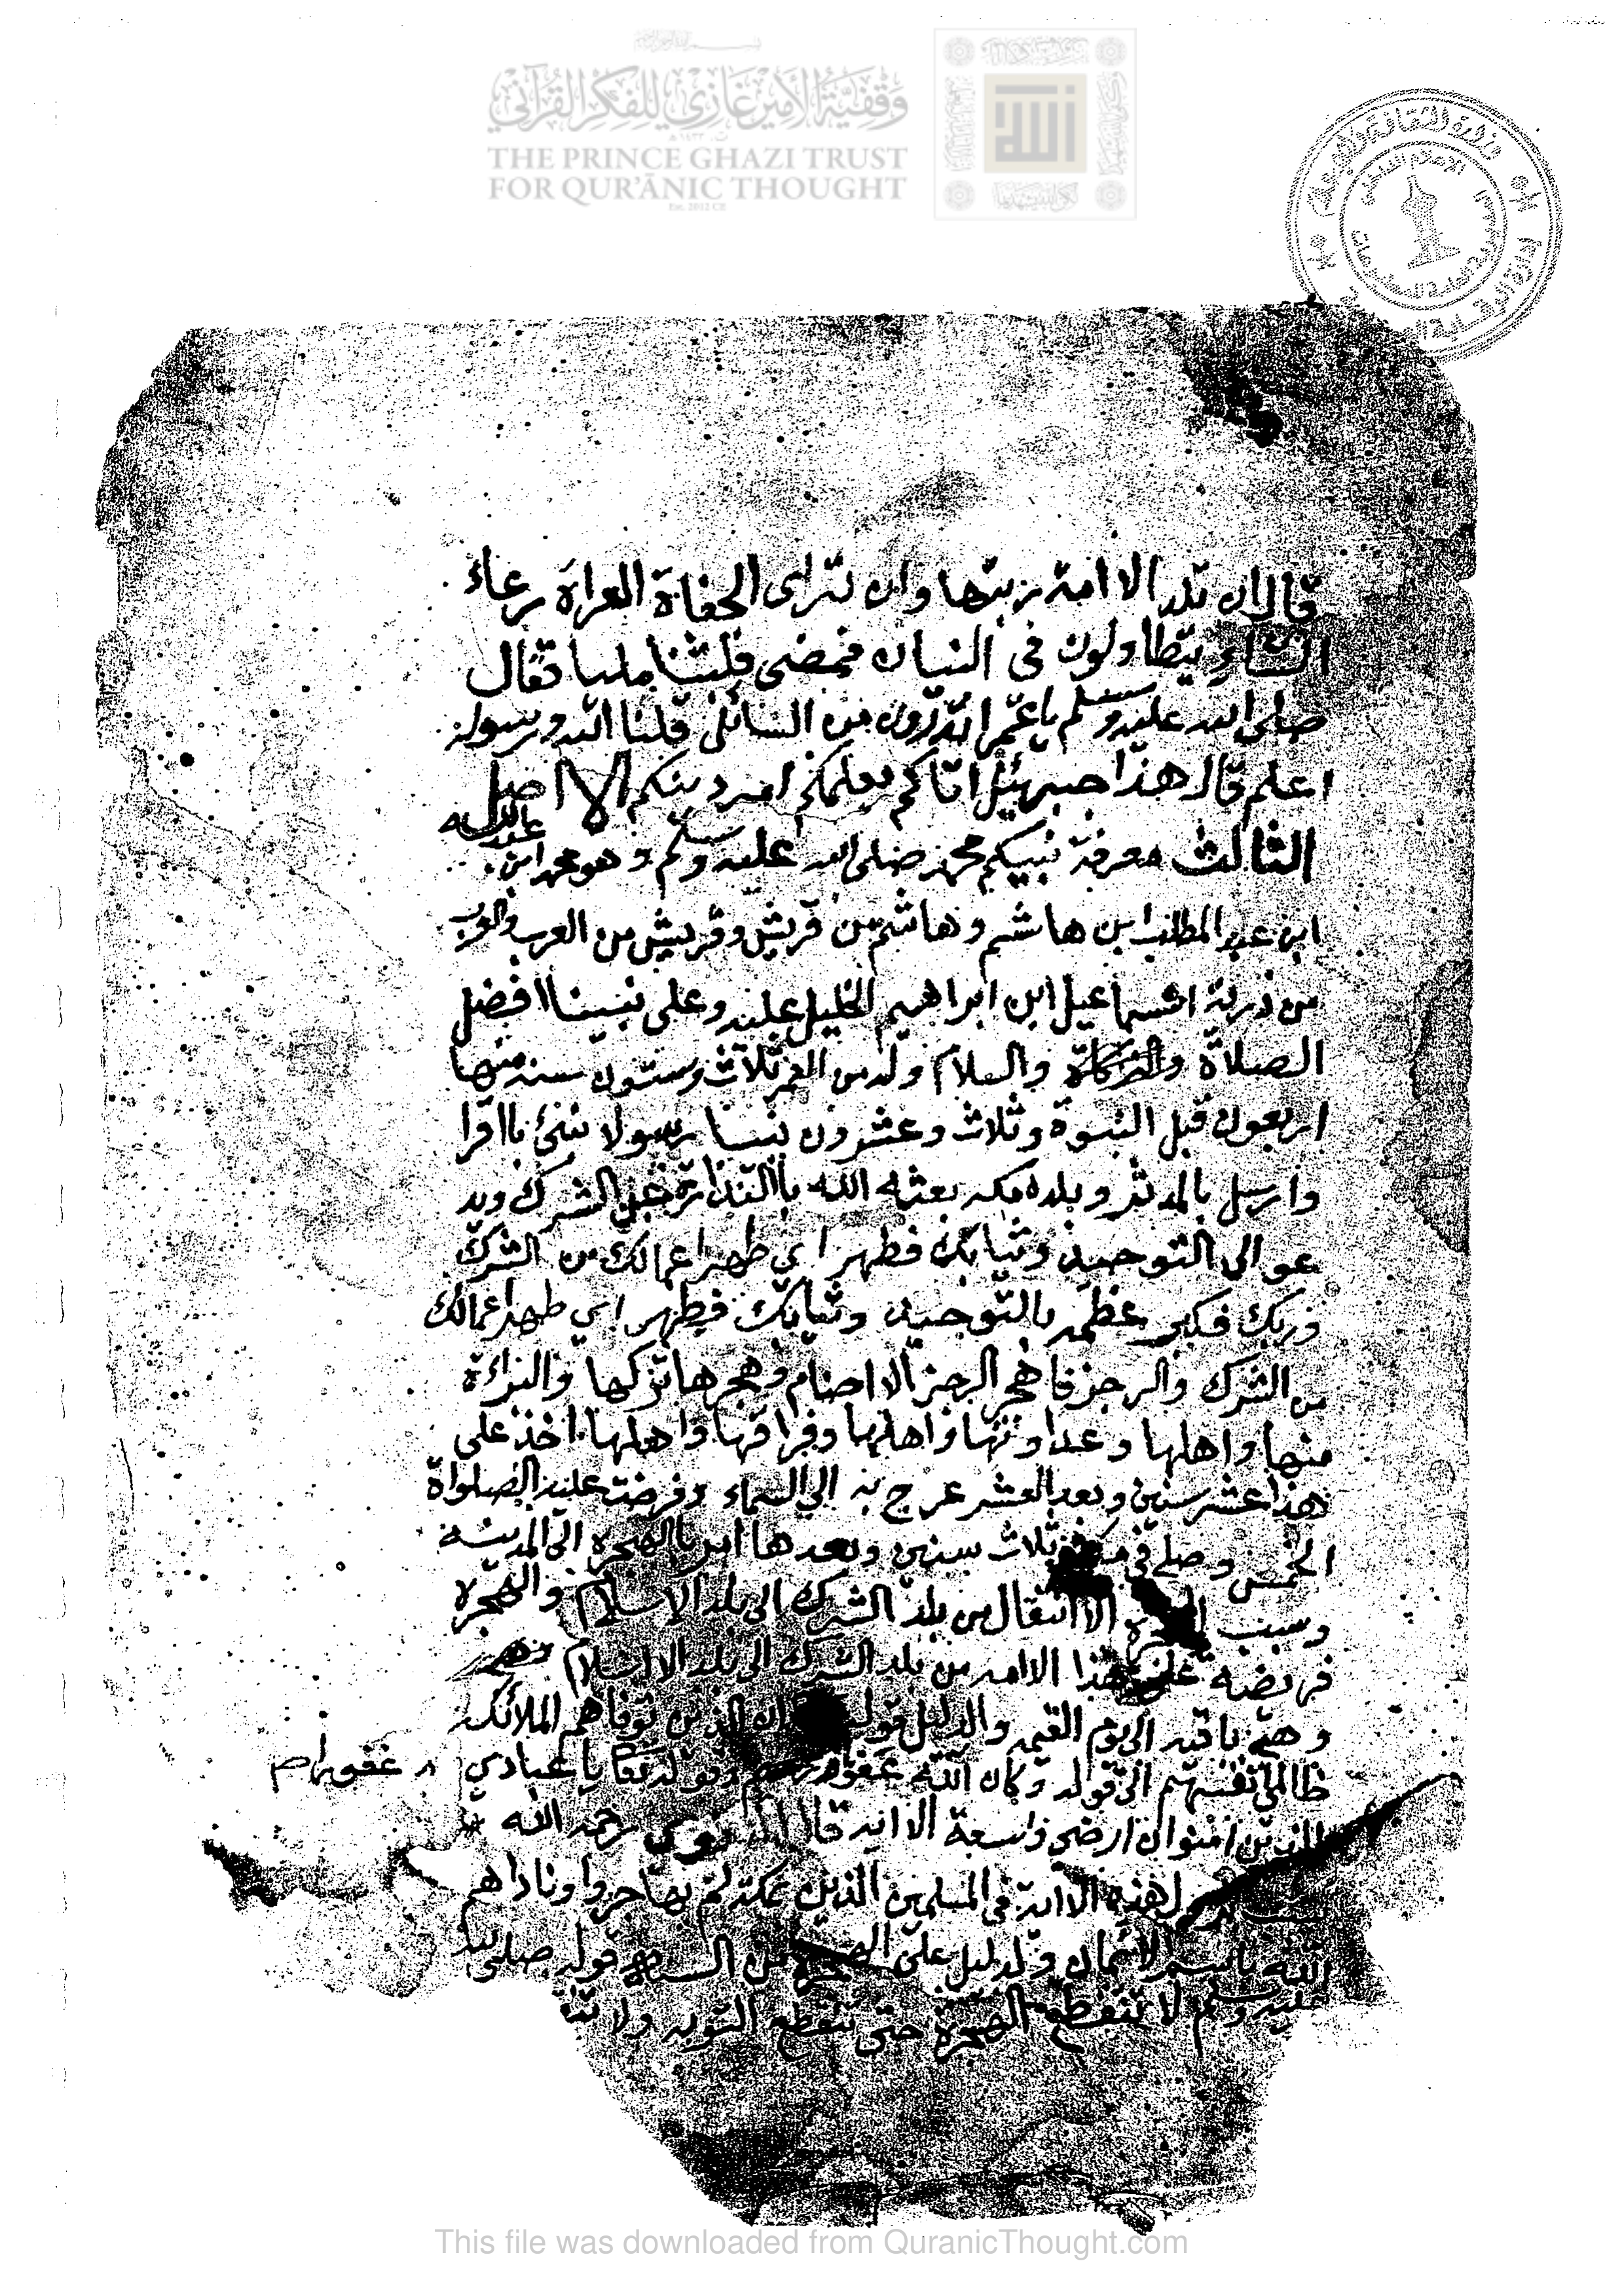 وقفية الأمير غازي للفكر القرآني
THE PRINCE GHAZI TRUST
FOR QUR'ĀNIC THOUGHT
Est. 2012 CE
الله
قال ان تلد الاامة ربتها وان تترلى الحفاة العراة رعاء
الشاء يتطاولون في البنيان فمضى فلبثنا مليا فقال
صلى الله عليه وسلم يا عمر اتدرون من السائل قلنا الله ورسوله
اعلم قال هذا جبرئيل اتاكم يعلمكم امر دينكم الاصل
الثالث معرفة نبيكم محمد صلى الله عليه وسلم وهو محمد ابن عبد الله
ابن عبد المطلب ابن هاشم وهاشم من قريش وقريش من العرب والعرب
من ذرية اسماعيل ابن ابراهيم الخليل عليه وعلى نبينا افضل
الصلاة والسلام وله من العمر ثلاث وستون سنه منها
اربعون قبل النبوة وثلاث وعشرون نبيا رسولا نبئ بااقرا
وارسل بالمدثر وبلده مكه بعثه الله باالنذارة عن الشرك ويد
عو الى التوحيد وثيابك فطهر اي طهر اعمالك من الشرك
وربك فكبر عظمه بالتوحيد وثيابك فطهر اي طهر اعمالك
من الشرك والرجز فاهجر الرجز الااصنام وهجرها تركها والبراءة
منها واهلها وعداوتها واهلها وفراقها واهلها اخذ على
هذا عشر سنين وبعد العشر عرج به الى السماء وفرضت عليه الصلواة
الخمس وصلى في مكة ثلاث سنين وبعدها امر باالهجرة الى المدينة
وسبب الاانتقال من بلد الشرك الى بلد الاسلام والهجره
فريضة على هذا الاامه من بلد الشرك الى بلد الااسلام
وهي باقيه الى يوم القيمه والدليل قوله ان الذين توفاهم الملائكه
ظالمي انفسهم الى قوله وكان الله عفوا وقوله تعا يا عبادي غفورا
الذين امنوا ان ارضي واسعة الاايه قال رحمه الله
هذه الاايه في المسلمين الذين بمكه لم يهاجروا وناداهم
الله باسم الاايمان والدليل على الهجرة من السنه قوله صلى الله
عليه وسلم لا تنقطع الهجرة حتى تنقطع التوبه ولا تنق
This file was downloaded from QuranicThought.com